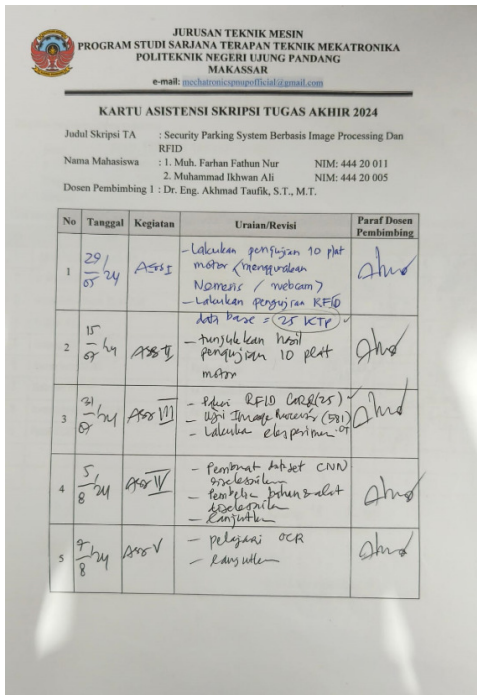 JURUSAN TEKNIK MESIN
PROGRAM STUDI SARJANA TERAPAN TEKNIK MEKATRONIKA
POLITEKNIK NEGERI UJUNG PANDANG
MAKASSAR
e-mail: mechatronicspnupofficial@gmail.com
KARTU ASISTENSI SKRIPSI TUGAS AKHIR 2024
Judul Skripsi TA : Security Parking System Berbasis Image Processing Dan
RFID
Nama Mahasiswa : 1. Muh. Farhan Fathun Nur NIM: 444 20 011
2. Muhammad Ikhwan Ali NIM: 444 20 005
Dosen Pembimbing 1 : Dr. Eng. Akhmad Taufik, S.T., M.T.
No Tanggal Kegiatan Uraian/Revisi Paraf Dosen
Pembimbing
1 29/05/24 Ass I
- Lakukan pengujian 10 plat
motor (menggunakan
/ webcam)
- Lakukan pengujian RFID
data base = 25 KTP
2 15/07/24 Ass II
- tunjukkan hasil
pengujian 10 plat
motor
3 31/07/24 Ass III
- RFID Card (25)
- Uji Image
- Lakukan eksperimen
4 5/8/24 Ass IV
- Pembuat dataset CNN
diselesaikan
- bahan & alat
diselesaikan
- lanjutkan
5 7/8/24 Ass V
- pelajari OCR
- lanjutkan